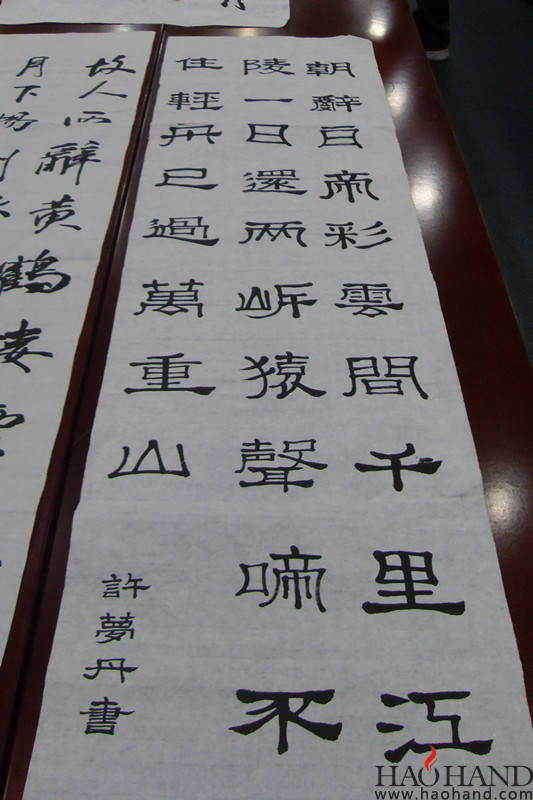 朝辭白帝彩雲間千里江
陵一日還两岸猿聲啼不
住輕舟已過萬重山
許夢丹書
故人西辭黄鶴
月下
HAOHAND
www.haohand.com